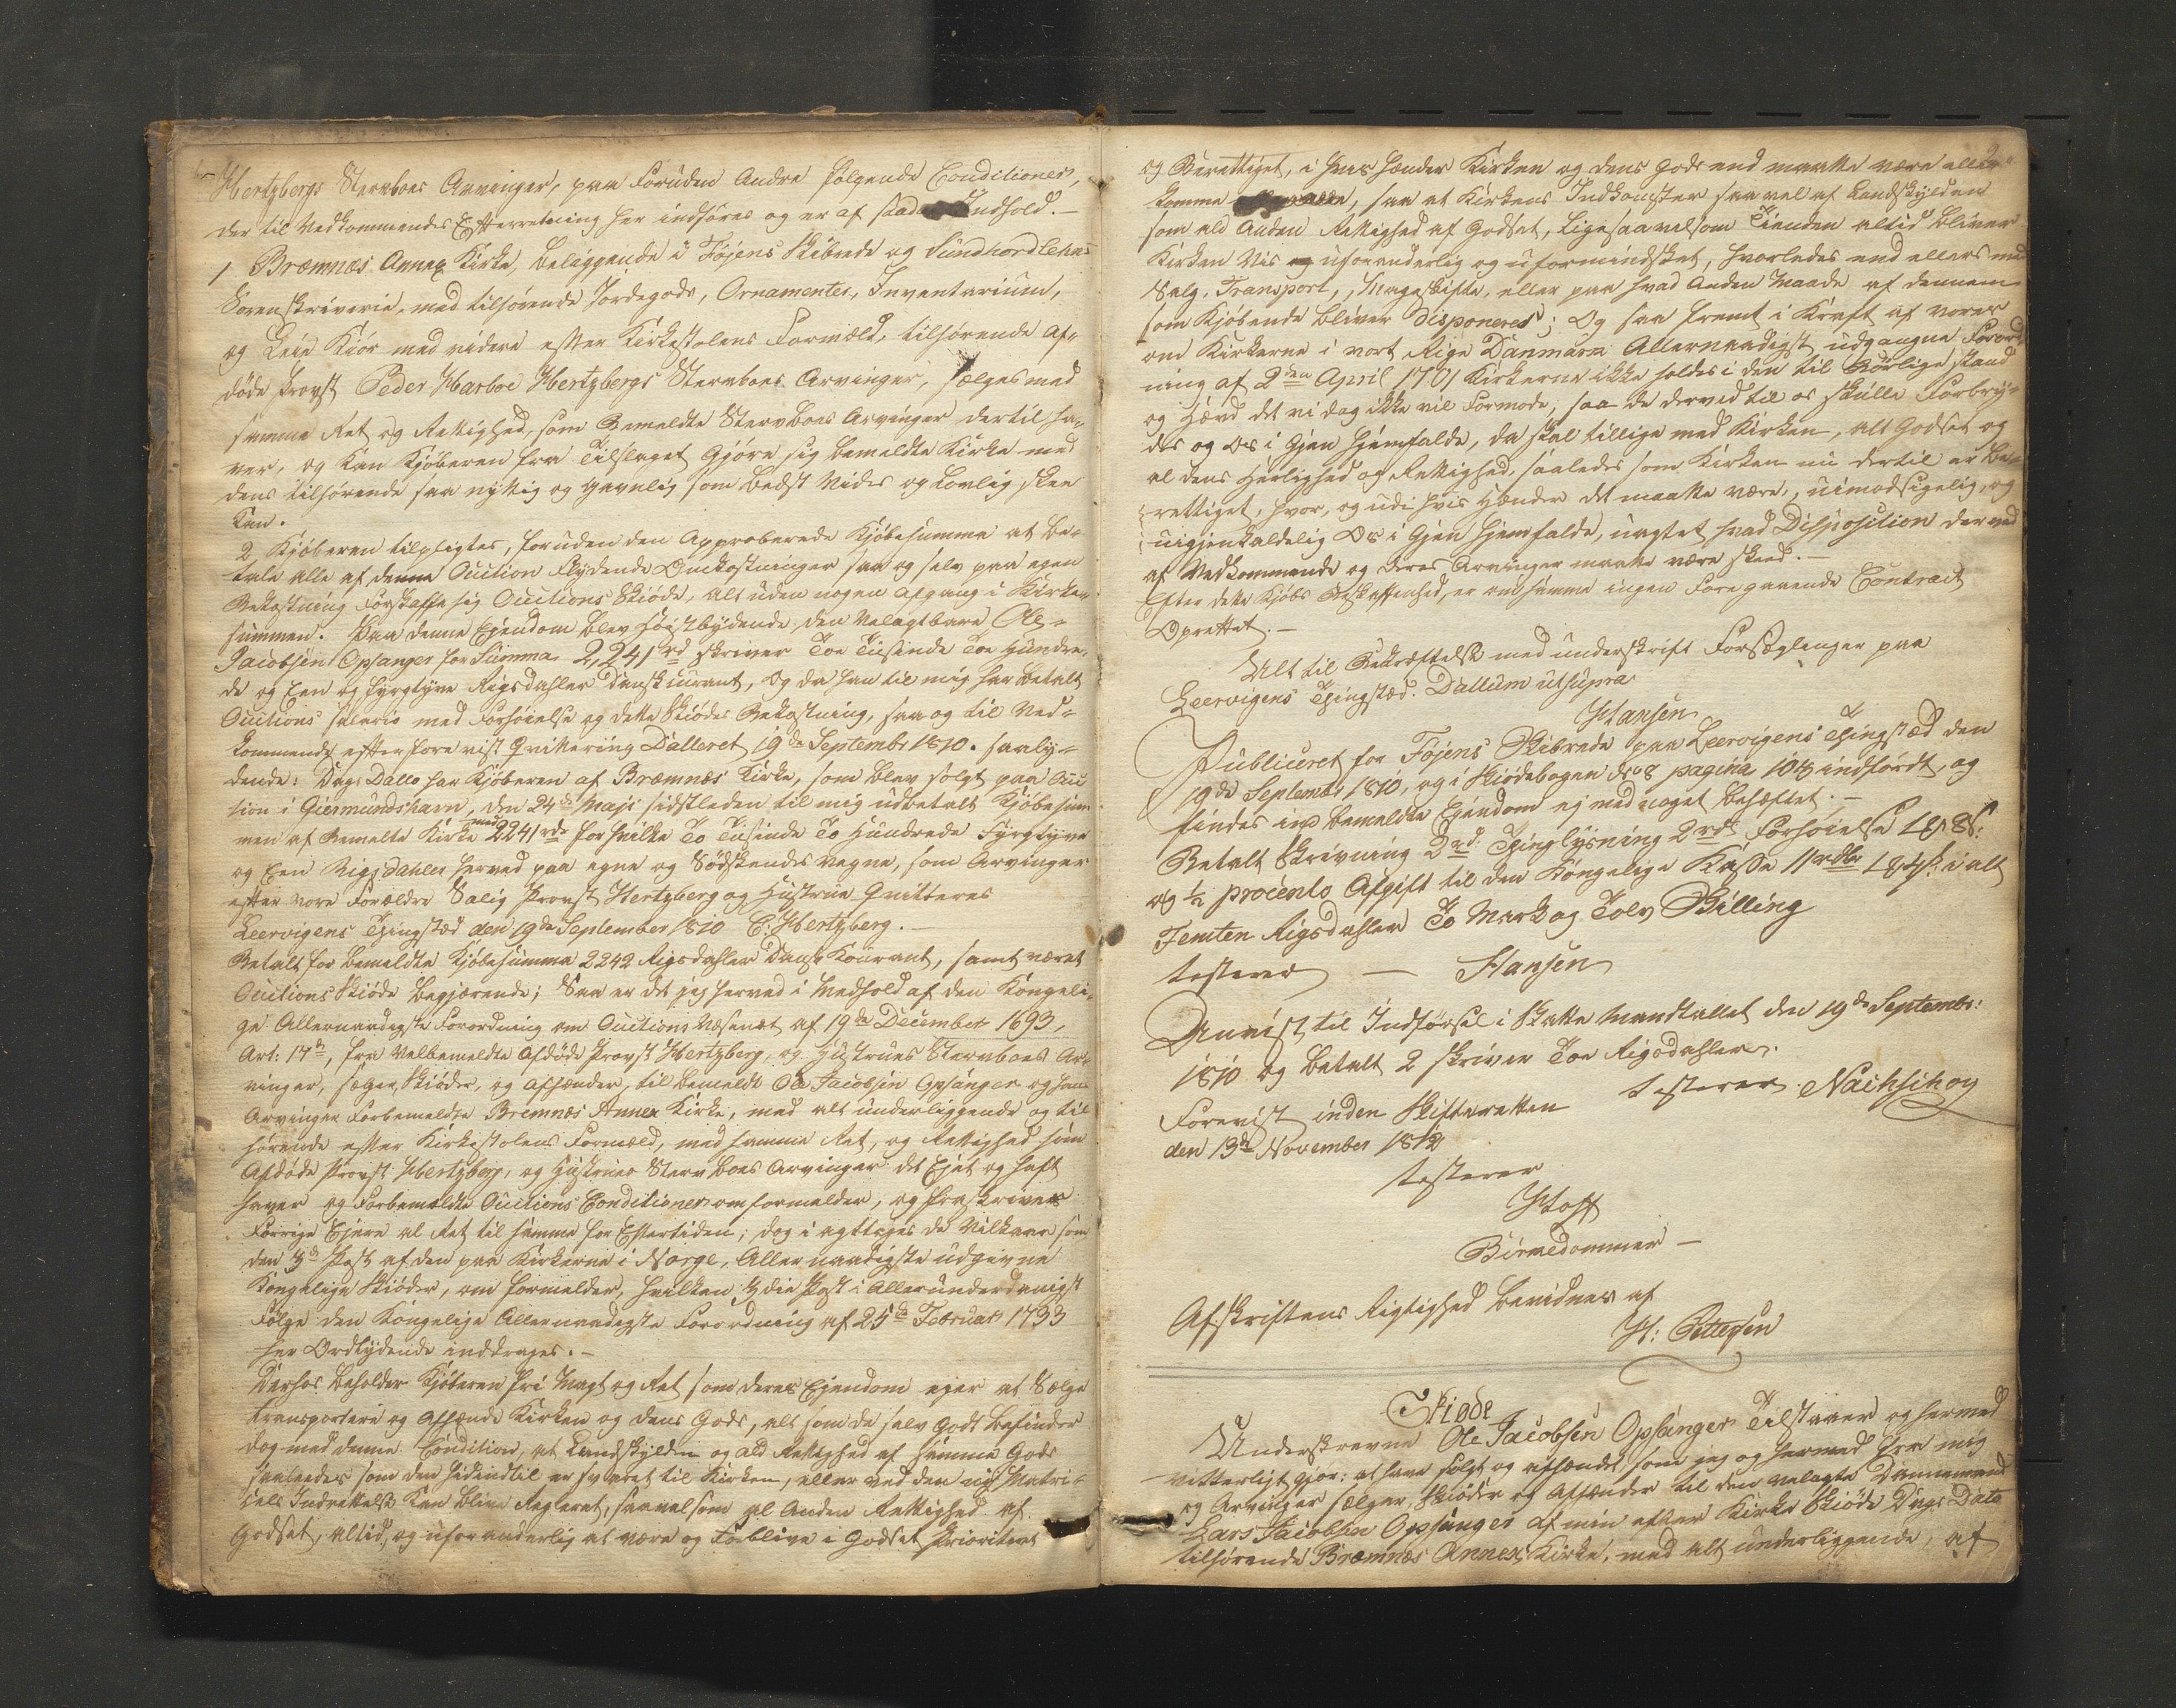 Hertzbergs Stervboes Arvinger, paa Foruden Andre følgende Conditioner,
der til Vedkommendes Efterretning her indføres og er af saadan Indhold. –
1 Bræmnæs Annex Kirke, beliggende i Føjens Skibrede og Sundhordlehns
Sorenskriverie, med tilhørende Jordegods, Ornamenter, Inventarium,
og Leie Kiør med videre efter Kirkestolens Formæld, tilhørende Af-
døde Provst Peder Harboe Hertzbergs Stervboes Arvinger, sælges med
samme Ret og Rettighed, som Bemeldte Stervboes Arvinger dertil ha-
ver, og kan Kjøberen fra Tilslaget Gjøre sig bemeldte Kirke med
dens tilhørende saa nyttig og gavnlig som bedst Vides og lovlig skee
kan.
2 Kjøberen tilpligtes, foruden den Approberede Kjøbesumma at be-
tale alle af denne Auction flydende Omkostninger saa og selv paa egen
Bekostning forskaffe sig Auctions Skiøde, alt uden nogen afgang i Kirke-
summen. Paa denne Ejendom blev høistbydende, den Velagtbare Ole
Jacobsen Opsanger for Summa 2,241 rd skriver Toe Tusinde Toe Hundre-
de og Een og fyrgtyve Rigsdahler Dansk Courant, og da han til mig har betalt
Auctions salerie med Forhøielse og dette Skiødes Bekostning, saa og til Ved-
kommende efter forevist Qvittering Dalleret 19de Septembr 1810. saaly-
dende: Dags Datto har Kjøberen af Bræmnæs Kirke, som blev solgt paa Auc
tion i Giermundshavn, den 24de Maji sidstleden til mig udbetalt Kjøbesum
men af Bemelte Kirke med 2241 rdr for hvilke To Tusinde To Hundrede Fyrgtyve
og Een Rigsdahler herved paa egne og Sødskendes vegne, som Arvinger
efter vore Forældre Salig Provst Hertzberg og Hustrue Qvitteres
Leervigens Thingstæd den 19de September 1810 C: Hertzberg. –
Betalt for bemeldte Kjøbesumma 2242 Rigsdahler Dansk Kourant, samt været
Auctions Skiøde begjærende; Saa er det jeg herved i Medhold af den Kongeli-
ge Allernaadigste Forordning om Auctions Væsenet af 19de December 1693,
Art: 17de, fra Velbemeldte Afdøde Provst Hertzberg, og Hustrues Stervboes Ar-
vinger, sælger, Skiøder, og afhænder, til bemeldte Ole Jacobsen Opsanger og hans
Arvinger Forbemeldte Bremnæs Annex Kirke, med alt underliggende og til
hørende efter Kirkestolens Formæld, med samme Ret, og Rettighed som
Afdøde Provst Hertzberg, og Hustrues Stervboes Arvinger det Ejet og haft
haver og Forbemeldte Auctions Conditioner omformelder, og fraskriver
Forrige Ejere al Ret til samme for Eftertiden; dog i agttages de Vilkaar som
den 3de Post af den paa Kirkerne i Norge, Allernaadigste udgivne
Kongelige Skiøder, om formelder, hvilken 3die Post i Allerunderdanigst
Følge den Kongelige Allernaadigste Forordning af 25de Februar 1733
her Ordlydende inddrages. –
Derhos beholder Kjøberen fri Magt og Ret som deres Ejendom ejer at Sælge
transportere og Afhænde Kirken og dens Gods, alt som de selv godt befinder
dog med denne Condition, at Landskylden og ald Rettighed af samme Gods
saaledes som den hidindtil er svaret til Kirken, eller ved den nye Matri-
culs Indrettelse kan blive Regleret, saavelsom al Anden Rettighed af
Godset, altid, og uforanderlig at være og forblive i Godset Prioriteret
og Berettiget, i hvis hænder Kirken og dens Gods end maatte være eller
komme, saa at Kirkens Indkomster saa vel af Landskylden
som ald Anden Rettighed af Godset, ligesaavelsom Tienden altid bliver
Kirken Vis og uforanderlig og uformindsket, hvorledes end ellers med
Salg, Transport, Mageskifte, eller paa hvad Anden Maade af dennem
som Kjøbende bliver disponeres; Og saa fremt i Kraft af vores
om Kirkerne i vort Rige Danmark Allernaadigst udgangne Forord
ning af 2den April 1701 Kirkerne ikke holdes i den til Børlige stand
og Hævd det vi dog ikke vil Formode, saa de derved til os skulle Forbry-
des og Os i Gjen hjemfalde, da skal tillige med Kirken, alt Godset og
al dens Herlighed og Rettighed, saaledes som Kirken nu dertil er be-
rettiget, hvor, og udi hvis Hænder det maatte være, uimodsigelig, og
uigjenkaldelig Os i Gjen hjemfalde, uagtet hvad Disposition der ved
af Vedkommende og deres Arvinger maatte være skeed. –
Efter dette Kjøbs Beskaffenhed, er om samme ingen Foregaaende Contract
Oprettet. –
Alt til Bekræftelse med underskrift Forseglinger paa
Leervigens Thingstæd. Dallum utsupra
Hansen
Publiceret for Føjens Skibrede paa Leervigens Thingstæd den
19de Septembr 1810, og i Skiødebogen No 8 pagina 108 indførdt, og
findes ind bemeldte Ejendom ej med noget behæftet. –
Betalt Skrivning 2 rd. Thinglysning 2 rd Forhøielse 1 # 8 s:
og ½ procento Afgift til den Kongelige Kasse 11 rdlr 1 # 4 s: i alt
Femten Rigsdahler To Mark og Tolv Skilling
testerer – Hansen
Anvist til Indførsel i Skatte Mandtallet den 19de Septembr:
1810 og betalt 2 skriver Toe Rigsdahler.
testerer
Forevist inden Skifteretten
den 13de November 1812
testerer
Hoff
Birkedommer –
Afskriftens Rigtighed bevidner af
H: Pettersen
Skiøde
Underskrevne Ole Jacobsen Opsanger Tilstaaer og hermed
vitterligt gjør: at have solgt og afhændet som jeg og hermed fra mig
og Arvinger sælger, skiøder og afhænder til den velagte Dannemand
Lars Jacobsen Opsanger af min efter Kirke Skiøde Dags Dato
tilhørende Bræmnæs Annex Kirke, med alt underliggende, af